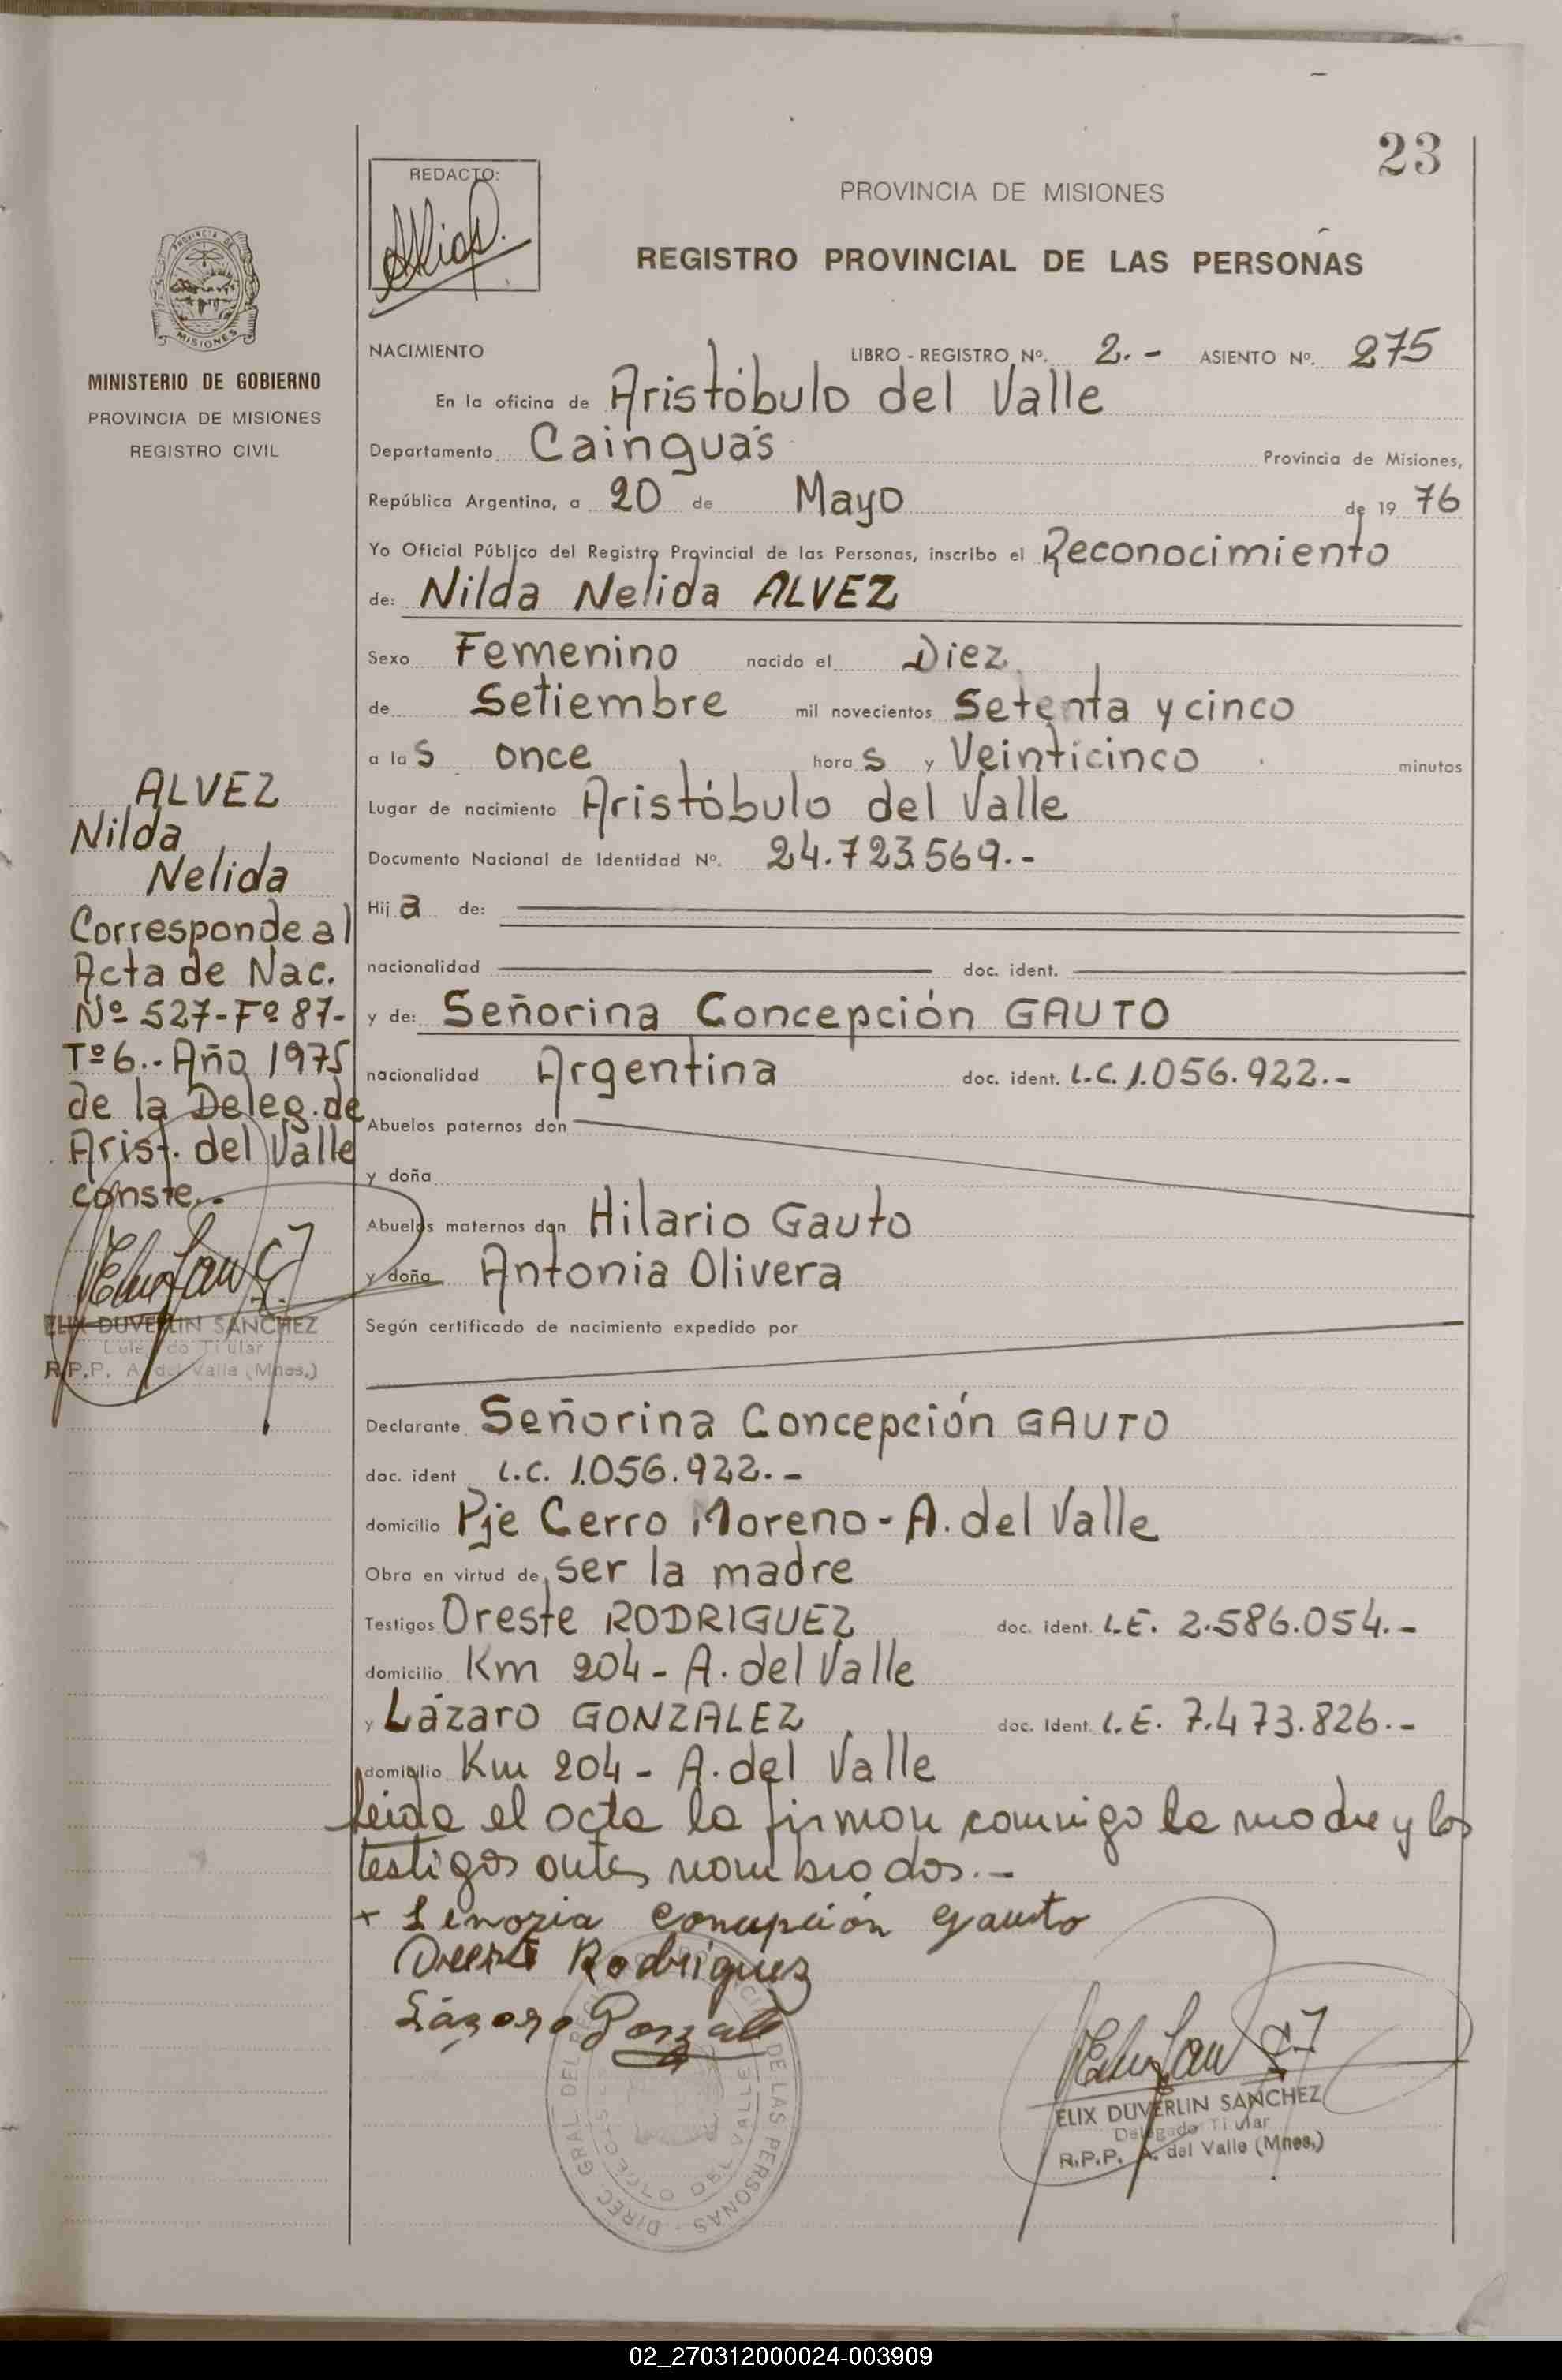 23
REDACTO:
PROVINCIA DE MISIONES
REGISTRO PROVINCIAL DE LAS PERSONAS
PROVINCIA DE
MISIONES
MINISTERIO DE GOBIERNO
PROVINCIA DE MISIONES
REGISTRO CIVIL
NACIMIENTO LIBRO - REGISTRO Nº. 2.- ASIENTO Nº. 275
En la oficina de Aristóbulo del Valle
Departamento Cainguás Provincia de Misiones,
República Argentina, a 20 de Mayo de 19 76
Yo Oficial Público del Registro Provincial de las Personas, inscribo el Reconocimiento
de: Nilda Nelida ALVEZ
Sexo Femenino nacido el Diez
de Setiembre mil novecientos Setenta y cinco
a las once horas y Veinticinco minutos
Lugar de nacimiento Aristóbulo del Valle
Documento Nacional de Identidad Nº. 24.723.569.-
Hija de:
nacionalidad doc. ident.
y de: Señorina Concepción GAUTO
nacionalidad Argentina doc. ident. L.C. 1.056.922.-
Abuelos paternos don
y doña
Abuelos maternos don Hilario Gauto
y doña Antonia Olivera
Según certificado de nacimiento expedido por
Declarante Señorina Concepción GAUTO
doc. ident L.C. 1.056.922.-
domicilio Pje Cerro Moreno - A. del Valle
Obra en virtud de ser la madre
Testigos Oreste RODRIGUEZ doc. ident. L.E. 2.586.054.-
domicilio Km 204 - A. del Valle
y Lázaro GONZALEZ doc. Ident. L.E. 7.473.826.-
domicilio Km 204 - A. del Valle
leida el acta la firman conmigo la madre y los
testigos antes nombrados.-
ALVEZ
Nilda
Nelida
Corresponde al
Acta de Nac.
Nº 527-Fº 87-
Tº 6.- Año 1975
de la Deleg. de
Arist. del Valle
conste.-
ELIX DUVERLIN SANCHEZ
R.P.P. A. del Valle (Mnes.)
+ Senoria Concepción gauto
Oreste Rodriguez
Lázaro Gonzale
DE LAS PERSONAS - DIREC. GRAL DEL
DEL VALLE
ELIX DUVERLIN SANCHEZ
Delegado Titular
R.P.P. A. del Valle (Mnes.)
02_270312000024-003909